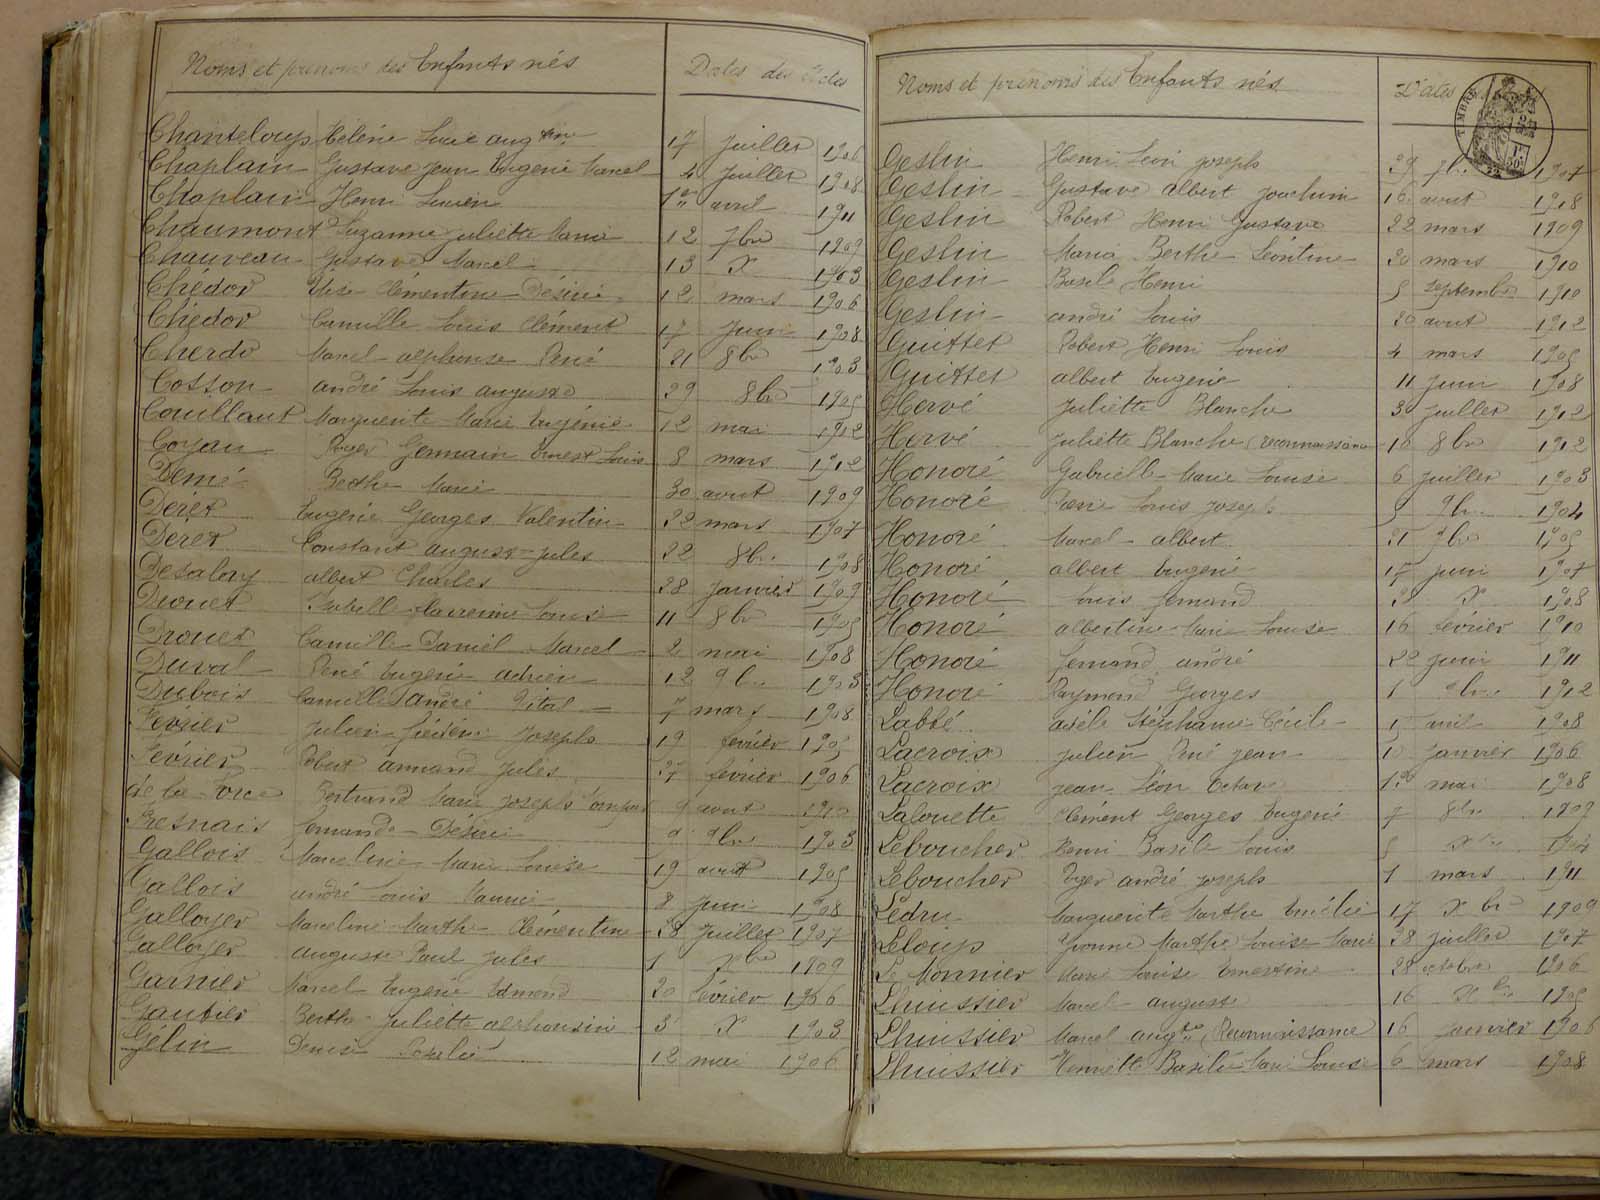 Noms et prénoms des Enfants nés Dates des Actes
Chanteloup Hélène Lucie Aug.tine 17 Juillet 1906
Chaplain Gustave Jean Eugène Marcel 4 Juillet 1908
Chaplain Henri Lucien 1er avril 1911
Chaumont Suzanne Juliette Marie 12 7bre 1909
Chauveau Gustave Marcel 13 X 1903
Chédor Clémentine Désirée 12 mars 1906
Chédor Camille Louis Clément 17 Juin 1908
Cherdo Marcel alphonse René 21 8bre 1903
Cosson andré Louis auguste 29 8bre 1905
Couillaut Marguerite Marie Eugénie 12 mai 1912
Coyau Roger Germain Ernest Louis 8 mars 1912
Demé Berthe Marie 30 aout 1909
Déret Eugène Georges Valentin 22 mars 1907
Déret Constant auguste Jules 22 8bre 1908
Desalay albert Charles 28 janvier 1909
Drouet Louise 11 8bre 1905
Drouet Camille Daniel Marcel 2 mai 1908
Duval René Eugène adrien 12 9bre 1903
Dubois Camille André Vital 7 mars 1908
Février Julien frédéric Joseph 19 février 1905
Février Robert armand Jules 27 février 1906
de la Force Bertrand Marie Joseph aout 1910
Fresnais fernande Désirée 9 9bre 1903
Gallois Marceline Marie Louise 19 aout 1905
Gallois andré Louis Maurice 8 Juin 1908
Galloyer Marceline Marthe Clémentine 28 Juillet 1907
Galloyer auguste Paul Jules 1 Xbre 1909
Garnier Marcel Eugène Edmond 20 février 1906
Gautier Berthe Juliette alphonsine 3 X 1903
Gélin Denise 12 mai 1906
Noms et prénoms des Enfants nés Dates
TIMBRE
Geslin Henri Léon Joseph 29 7bre 1907
Geslin Gustave albert Joachim 16 aout 1908
Geslin Robert Henri Gustave 22 mars 1909
Geslin Maria Berthe Léontine 30 mars 1910
Geslin Basile Henri 5 septembre 1910
Geslin andré Louis 20 aout 1912
Guittet Robert Henri Louis 4 mars 1905
Guittet albert Eugène 11 Juin 1908
Hervé Juliette Blanche 3 Juillet 1912
Hervé Juliette Blanche (reconnaissance 10 8bre 1912
Honoré Gabrielle Marie Louise 6 Juillet 1903
Honoré Pierre Louis Joseph 5 9bre 1904
Honoré Marcel albert 21 9bre 1905
Honoré albert Eugène 17 Juin 1907
Honoré Louis fernand X 1908
Honoré albertine Marie Louise 16 février 1910
Honoré fernand andré 22 Juin 1911
Honoré Raymond Georges 1 9bre 1912
Labbé adèle Stéphanie Cécile avril 1908
Lacroix Julien René Jean 10 janvier 1906
Lacroix Jean Léon Octave 1er mai 1908
Lalouette Clément Georges Eugène 7 8bre 1909
Leboucher Henri Basile Louis 5 Xbre 1904
Leboucher Roger andré Joseph 1 mars 1911
Lédru Marguerite Marthe Emélie 17 Xbre 1909
Leloup Yvonne Marthe Louise Marie 28 Juillet 1907
Le Monnier Marie Louise Ernestine 28 octobre 1906
Lhuissier Marcel auguste 16 Xbre 1905
Lhuissier Marcel augte (Reconnaissance 16 janvier 1906
Lhuissier Henriette Basile Marie Louise 6 mars 1908